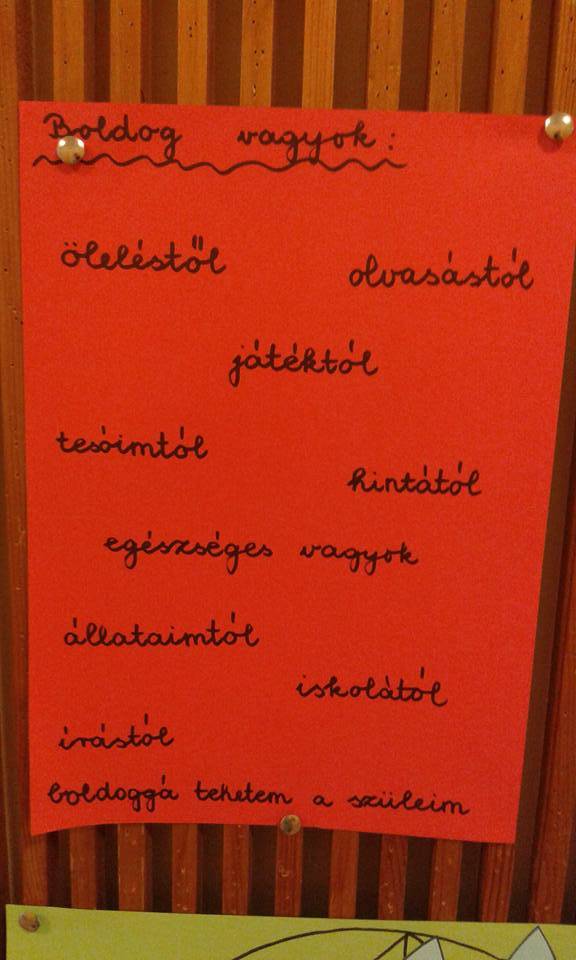 Boldog vagyok:
öleléstől
olvasástól
játéktól
tesóimtól
hintától
egészséges vagyok
állataimtól
iskolától
írástól
boldoggá tehetem a szüleim